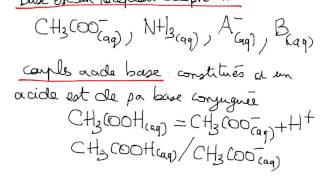 CH3COO⁻(aq), NH3(aq), A⁻(aq), B(aq)
couples acide base constitués d'un
acide est de pa base conjuguée
CH3COOH(aq) = CH3COO⁻(aq) + H⁺
CH3COOH(aq) / CH3COO⁻(aq)